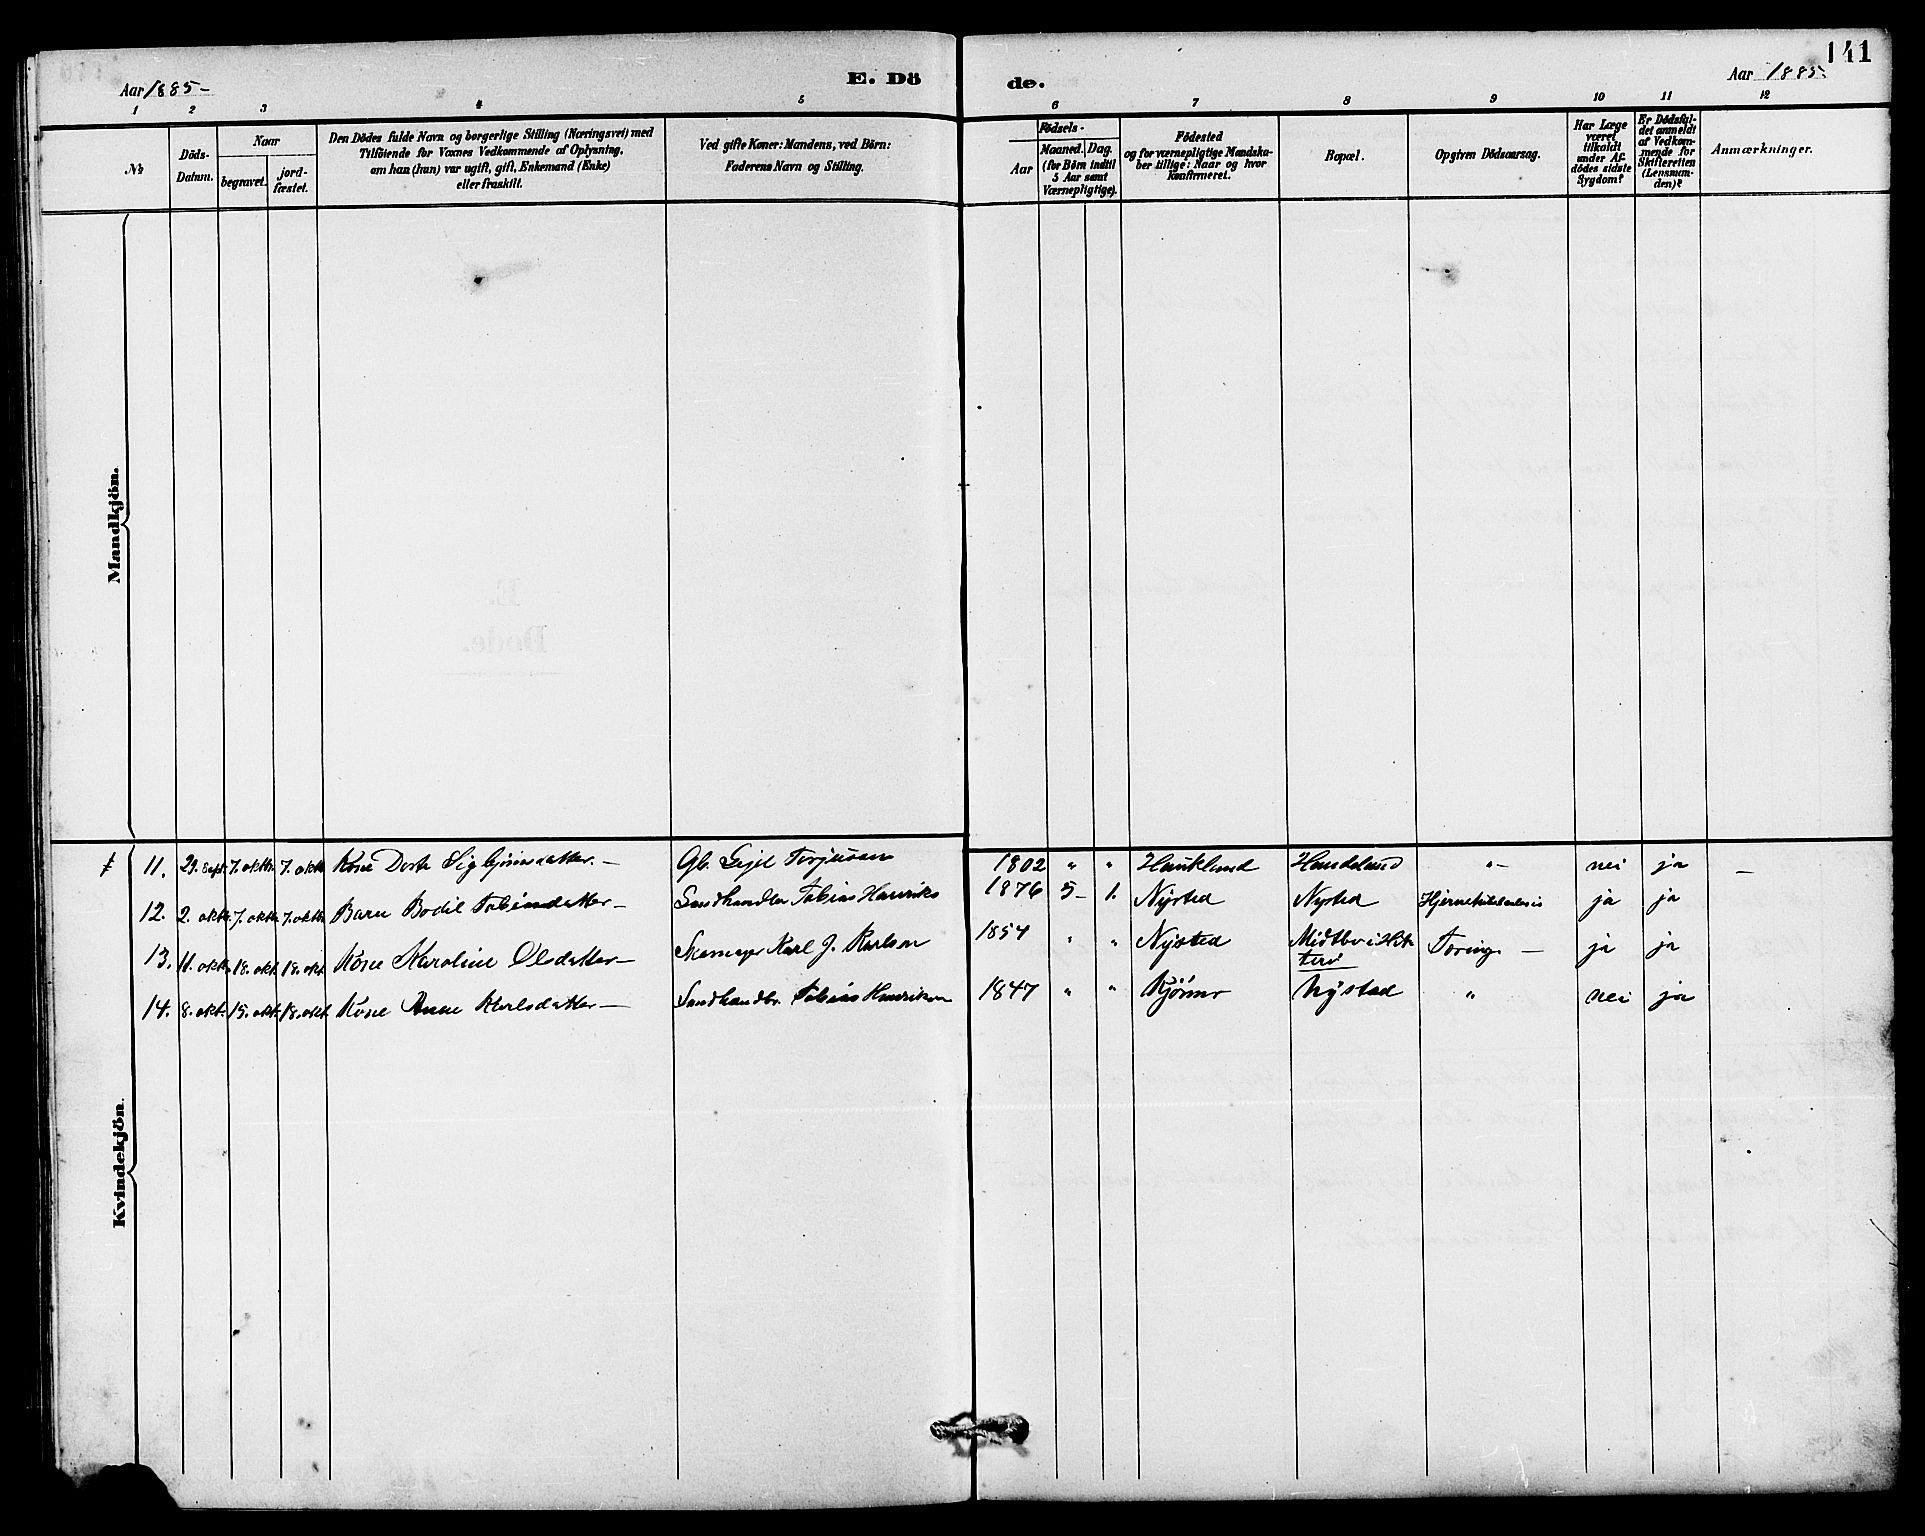 141
Aar 1885-
E. Dö
de.
Aar 1885.
1 2 3 4 5 6 7 8 9 10 11 12
No
Döds-
Datum.
Naar
begravet.
jord-
fæstet.
Den Dödes fulde Navn og borgerlige Stilling (Næringsvei) med
Tilföiende for Voxnes Vedkommende af Oplysning,
om han (hun) var ugift, gift, Enkemand (Enke)
eller fraskilt.
Ved gifte Koner: Mandens, ved Börn:
Faderens Navn og Stilling.
Födsels-
Aar
Maaned. Dag.
(for Börn indtil
5 Aar samt
Værnepligtige).
Födested
og for værnepligtige Mandska-
ber tillige: Naar og hvor
konfirmeret.
Bopæl.
Opgiven Dödsaarsag.
Har Læge
været
tilkaldt
under Af-
dödes sidste
Sygdom?
Er Dödsfal-
det anmeldt
af Vedkom-
mende for
Skifteretten
(Lensman-
den)?
Anmærkninger.
Mandkjön.
Kvindekjön.
11. 29. Sept. 7. oktb. 7. oktb. Kone Dorte Sigbjørnsdatter. — Gb. Gejel Terjesen 1802 " " Haukland Handeland "- nei ja —
12. 2. oktb. 7. oktb. 7. oktb. Barn Bodil Tobiasdatter — Sandhandler Tobias Henriks 1876 5- 1. Nysted Nysted ja ja
13. 11. oktb. 18. okt. 18. okt. Kone Karoline Olsdatter — Skomager Karl J. Karlsen 1854 " " Nysted Midtbø i Hit-
terø Tæring — ja ja
14. 8. okt. 15. okt. 18. okt. Kone Anne Karlsdatter — Sandhandler. Tobias Henriksen 1847 " " Kjørmo Nystad " nei ja